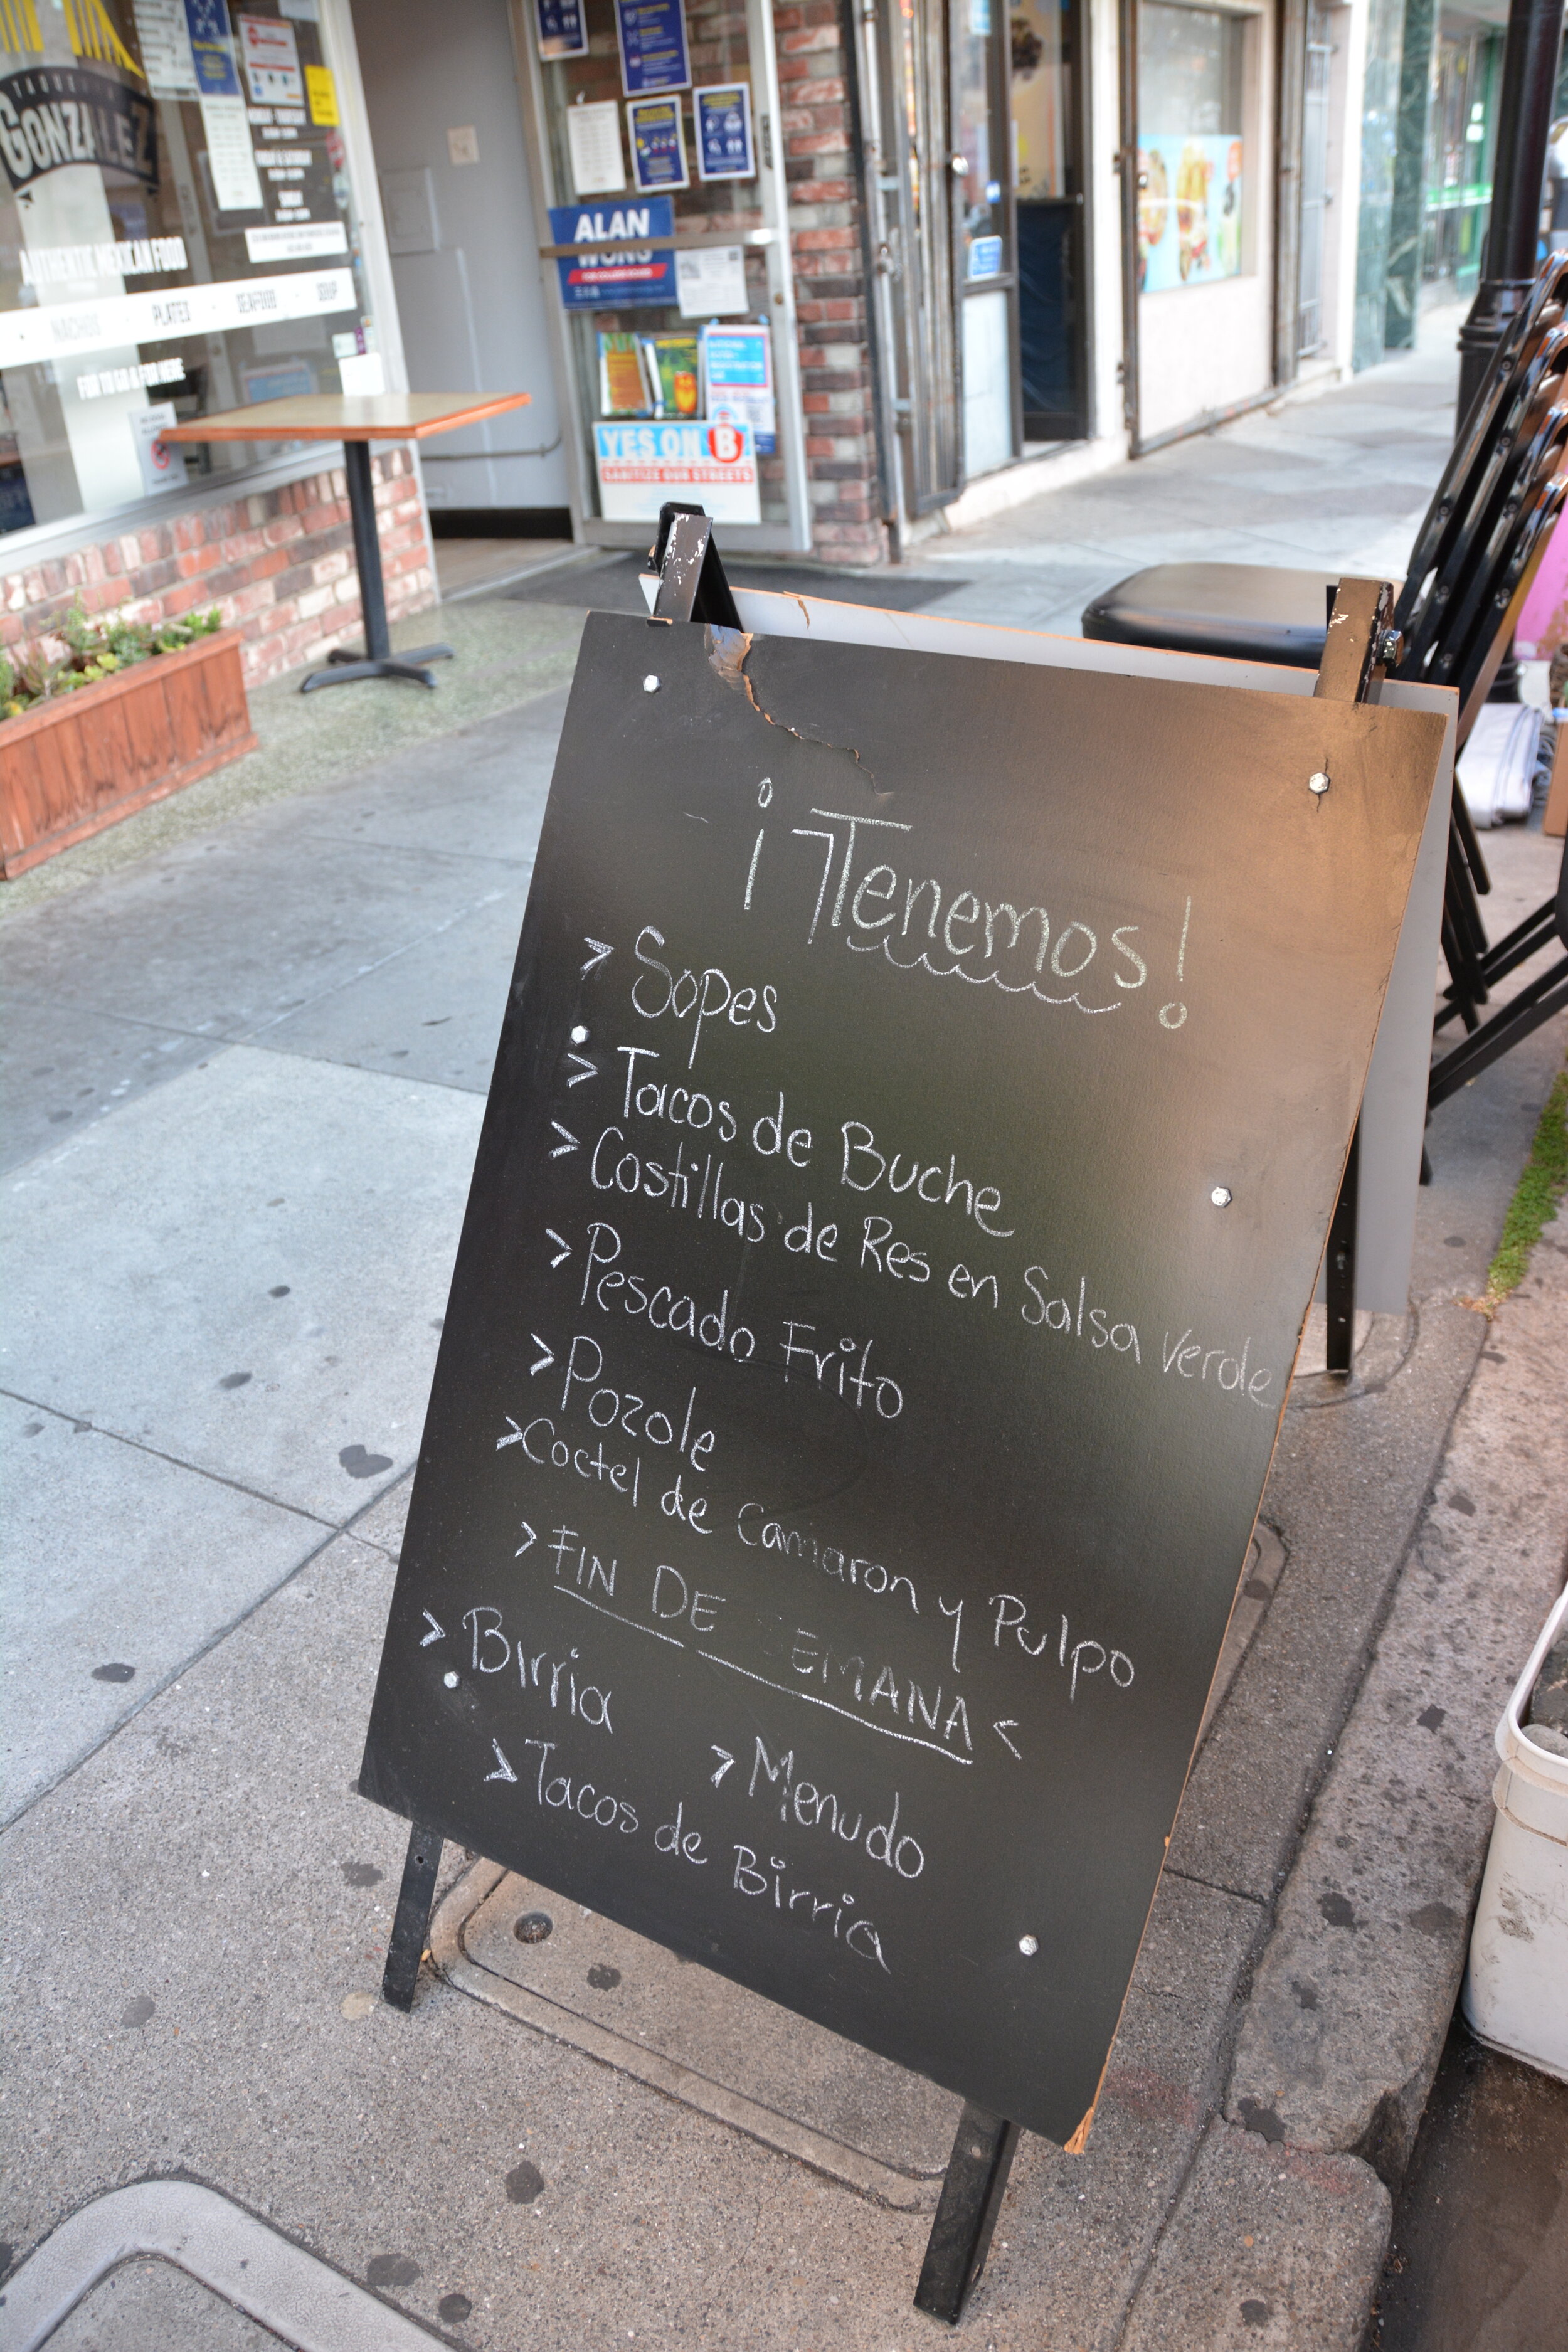 GONZALEZ
AUTHENTIC MEXICAN FOOD
NACHOS - PLATES - SEAFOOD - SOUP
FOR TO GO & FOR HERE
ALAN
WONG
FOR COLLEGE BOARD
YES ON B
SANITIZE OUR STREETS
¡Tenemos!
> Sopes
> Tacos de Buche
> Costillas de Res en Salsa Verde
> Pescado Frito
> Pozole
> Coctel de Camaron y Pulpo
> FIN DE SEMANA <
> Birria
> Menudo
> Tacos de Birria